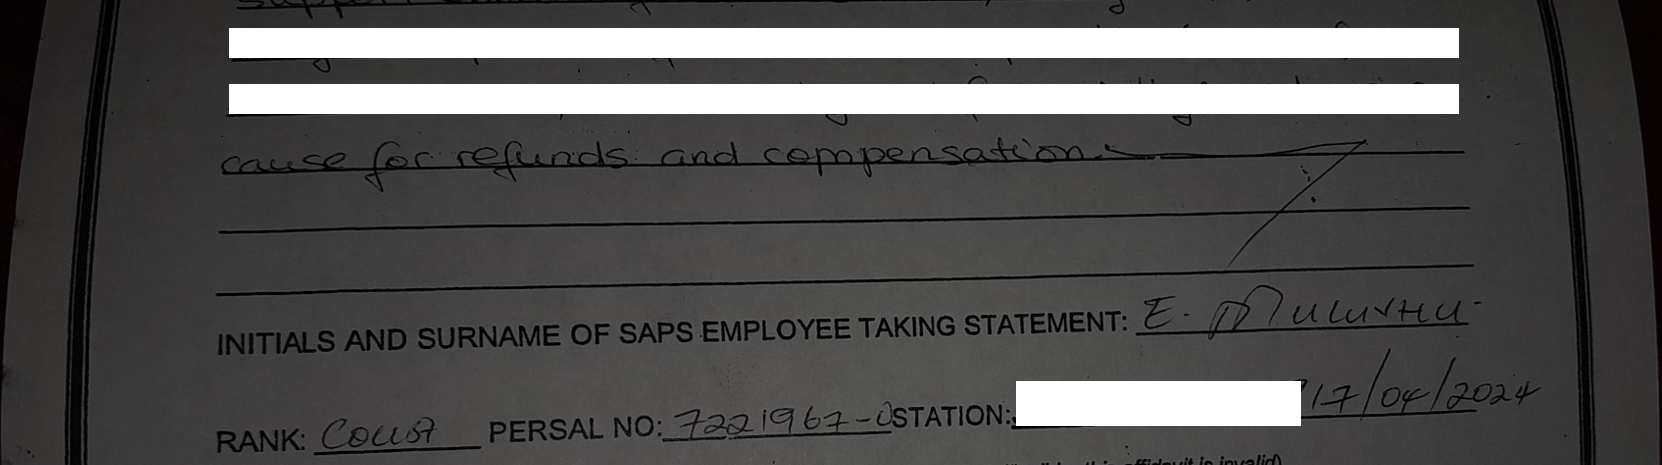 support
cause for refunds and compensation.
INITIALS AND SURNAME OF SAPS EMPLOYEE TAKING STATEMENT: E. Muluvhu
RANK: Const PERSAL NO: 7221967-0 STATION: 17/04/2024
affidavit is invalid)